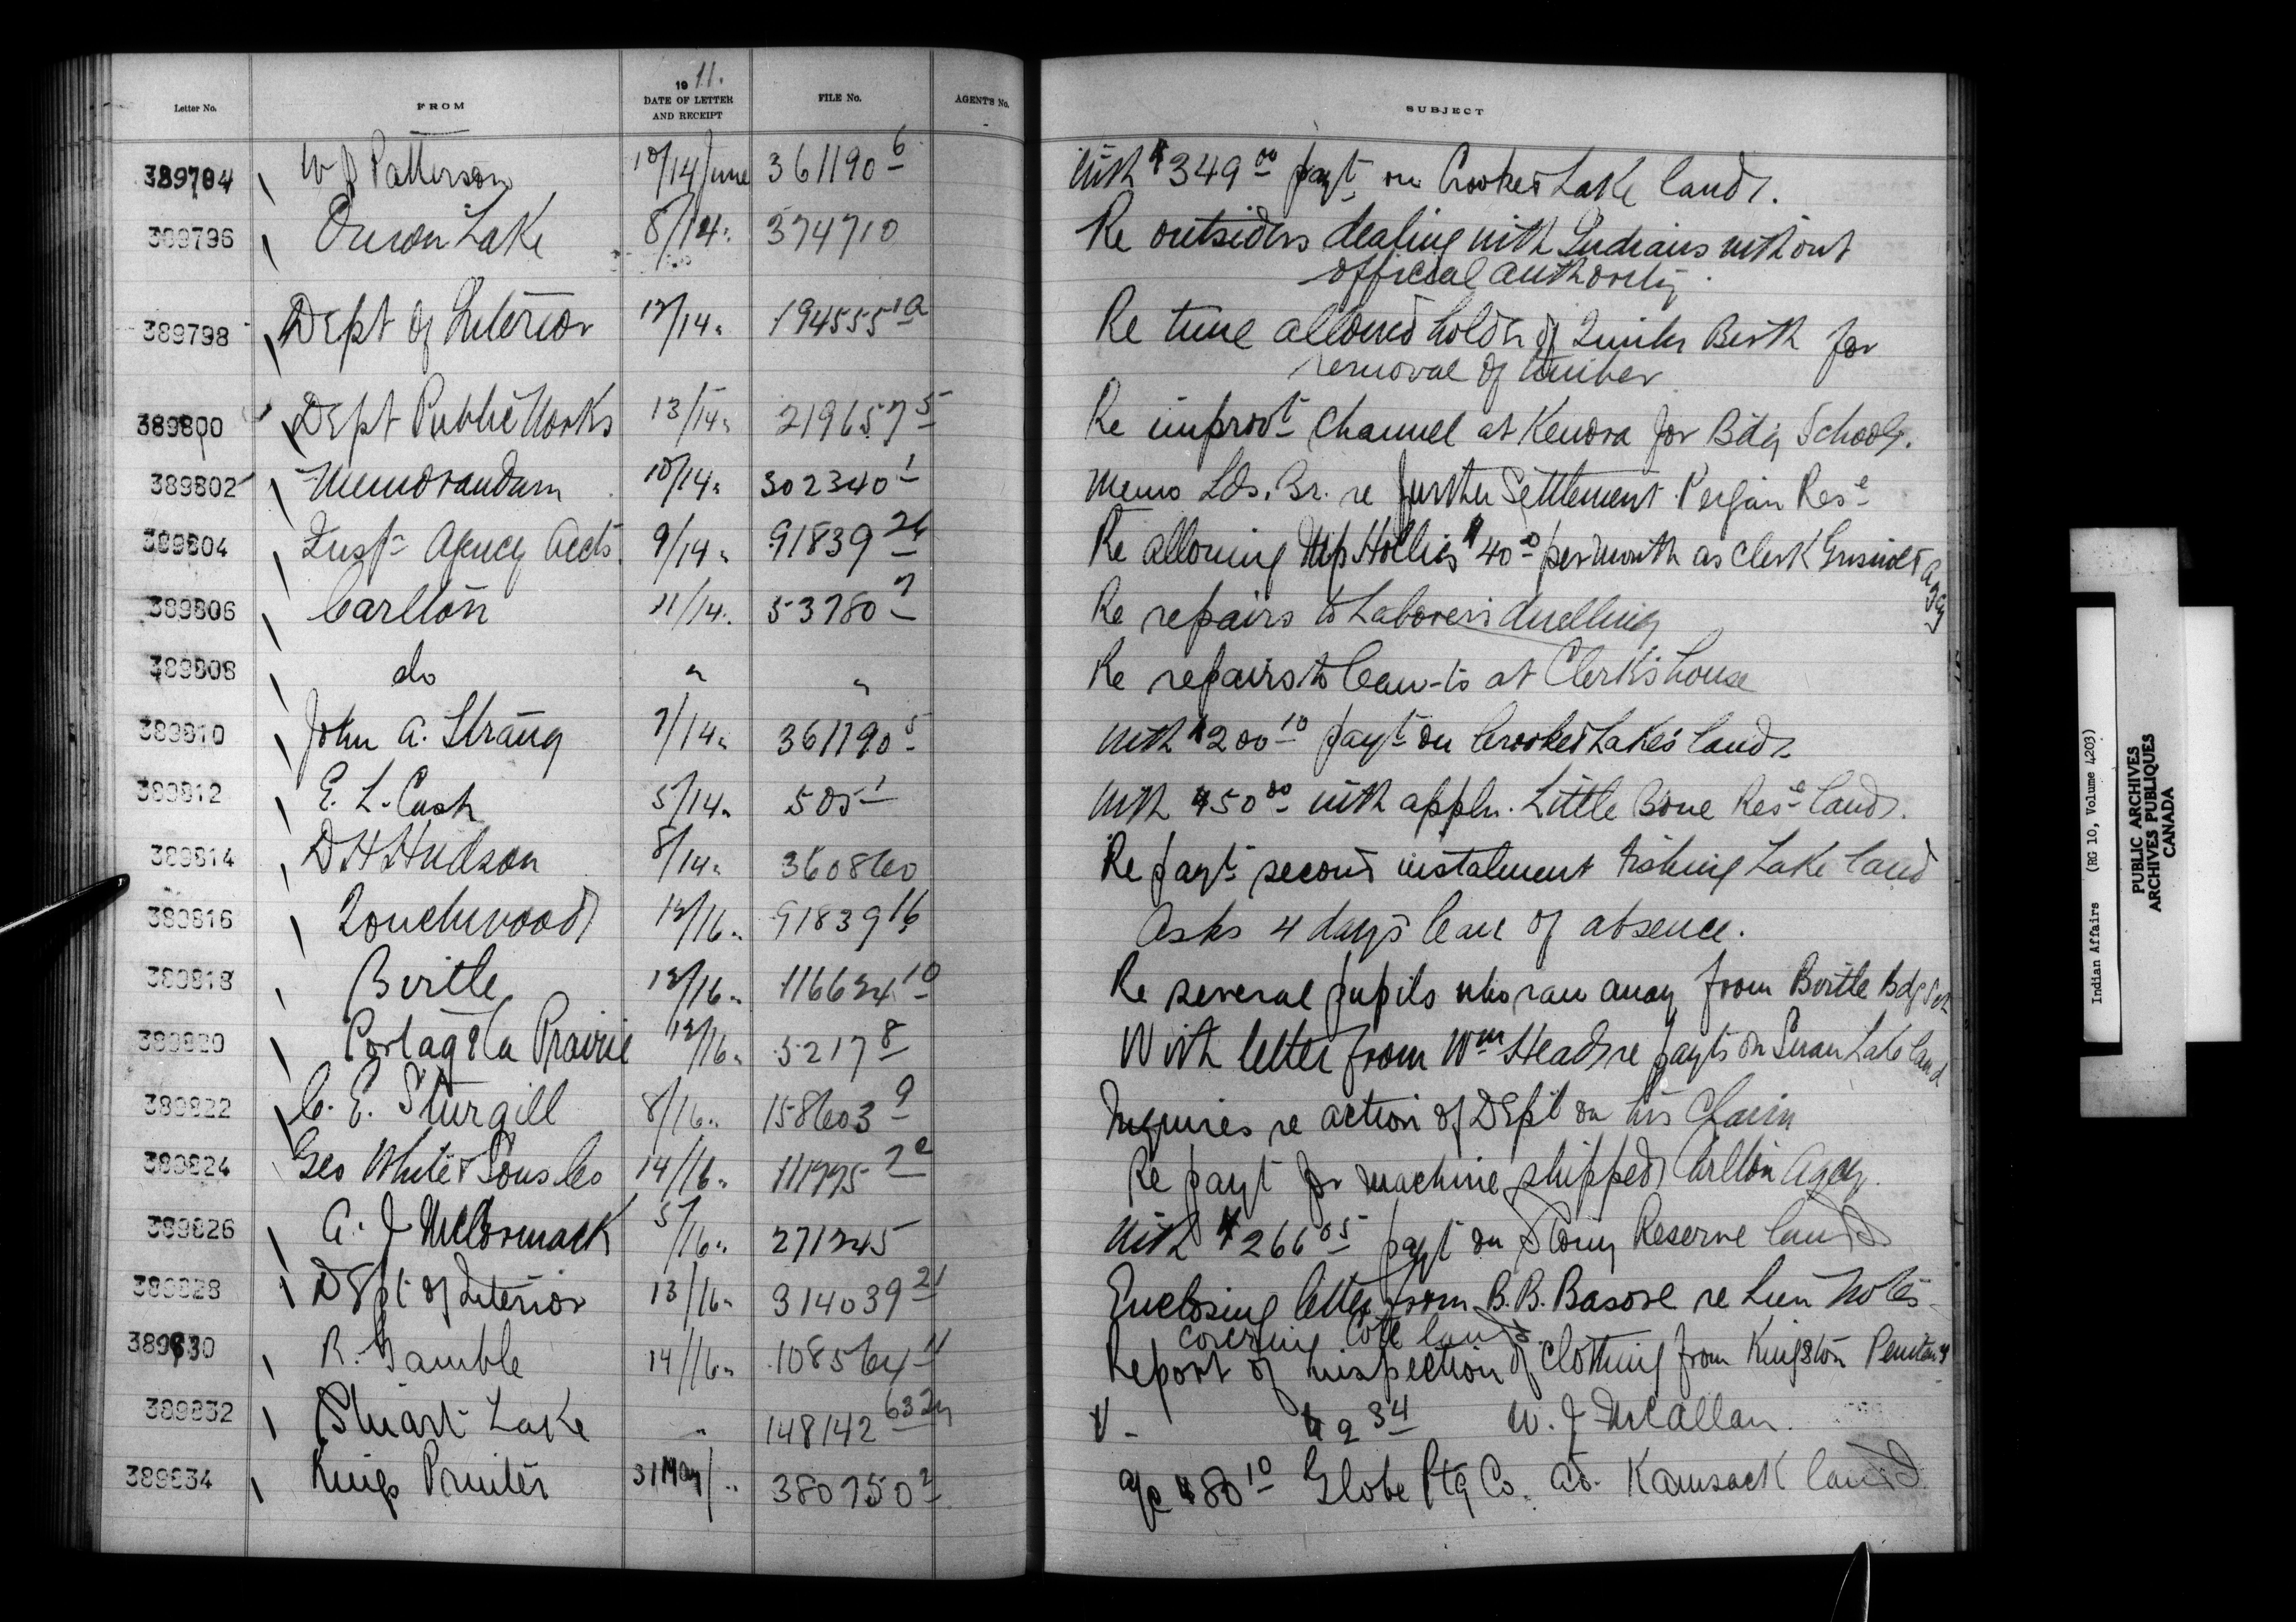 Letter No. FROM 1911. DATE OF LETTER AND RECEIPT FILE No. AGENT'S No. SUBJECT
389794 W J Patterson 10/14 June 361190 6 With $349 00 payt on Crooked Lake lands.
389796 Onion Lake 8/14 " 374710 Re outsiders dealing with Indians without
official authority.
389798 Dept of Interior 12/14 " 194555 1a Re time allowed holder of Timber Berth for
removal of timber
389800 Dept Public Works 13/14 " 219657 5 Re improvt Channel at Kenora for Bdg Schools.
389802 Memorandum 10/14 " 302340 1 Memo Lds. Br. re further Settlement Peigan Rese
389804 Insp Agency Accts. 9/14 " 91839 26 Re allowing Hollies $40 00 per month as Clerk Agcy
389806 Carlton 11/14 " 53780 7 Re repairs to Laborers dwelling
389808 do " " Re repairs to lean-to at Clerk's house
389810 John A. Strang 7/14 " 361190 5 With $200 10 payt on Crooked Lakes lands
389812 E. L. Cash 5/14 " 505 1 With $50 00 with appln. Little Bone Rese lands.
389814 D H Hudson 8/14 " 360860 Re payt second instalment Fishing Lake land
389816 Touchwood 12/16 " 91839 16 Asks 4 days leave of absence.
389818 Birtle 12/16 " 116634 10 Re several pupils who ran away from Birtle Bdg Sch
389820 Portage la Prairie 12/16 " 5217 8 With letter from Wm Heads re payts on Swan Lake land
389822 C. E. Sturgill 8/16 " 158603 9 Inquires re action of Dept on his Claim
389824 Geo White & Sons Co 14/16 " 111995 2c Re payt for machine shipped Carlton Agcy.
389826 A. J McCormack 5/16 " 271245 With $266 05 payt on Stony Reserve lands
389828 Dept of Interior 13/16 " 314039 21 Enclosing letter from B. B. Basore re Lien Notes
covering Cote lands.
389830 R. Gamble 14/16 " 108564 4 Report of inspection of clothing from Kingston Peniteny
389832 Stuart Lake " 148142 632 V - 34 W. J McAllan.
389834 Kings Printer 31 May/ " 380750 2 a/c $80 10 Globe Ptg Co. ad. Kamsack lands
Indian Affairs (RG 10, Volume 4203)
PUBLIC ARCHIVES
ARCHIVES PUBLIQUES
CANADA